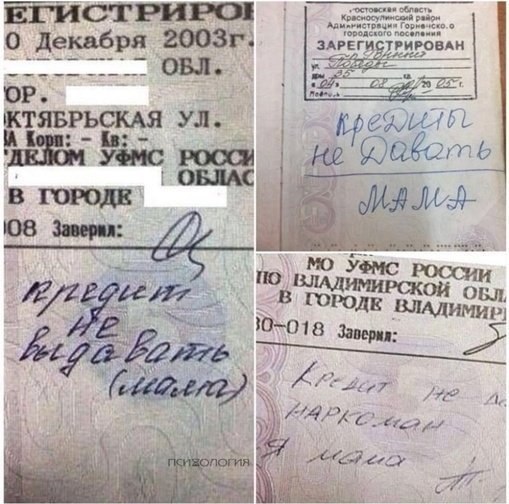 ЕГИСТРИРО
0 Декабря 2003г.
ОБЛ.
ОР.
КТЯБРЬСКАЯ УЛ.
ІА Корп: - Кв: -
ДЕЛОМ УФМС РОССИ
ОБЛАС
В ГОРОДЕ
008 Заверил:
кредит
не
выдавать
(мама)
ПСИХОЛОГИЯ
Ростовская область
Красносулинский район
Администрация Горненского
городского поселения
ЗАРЕГИСТРИРОВАН
ул. Победы
дом 35 кв.
04 08 2005 г.
кредиты
не Давать
МАМА
МО УФМС РОССИИ
ПО ВЛАДИМИРСКОЙ ОБЛ
В ГОРОДЕ ВЛАДИМИР
30-018 Заверил:
Кредит не
НАРКОМАН
Я мама